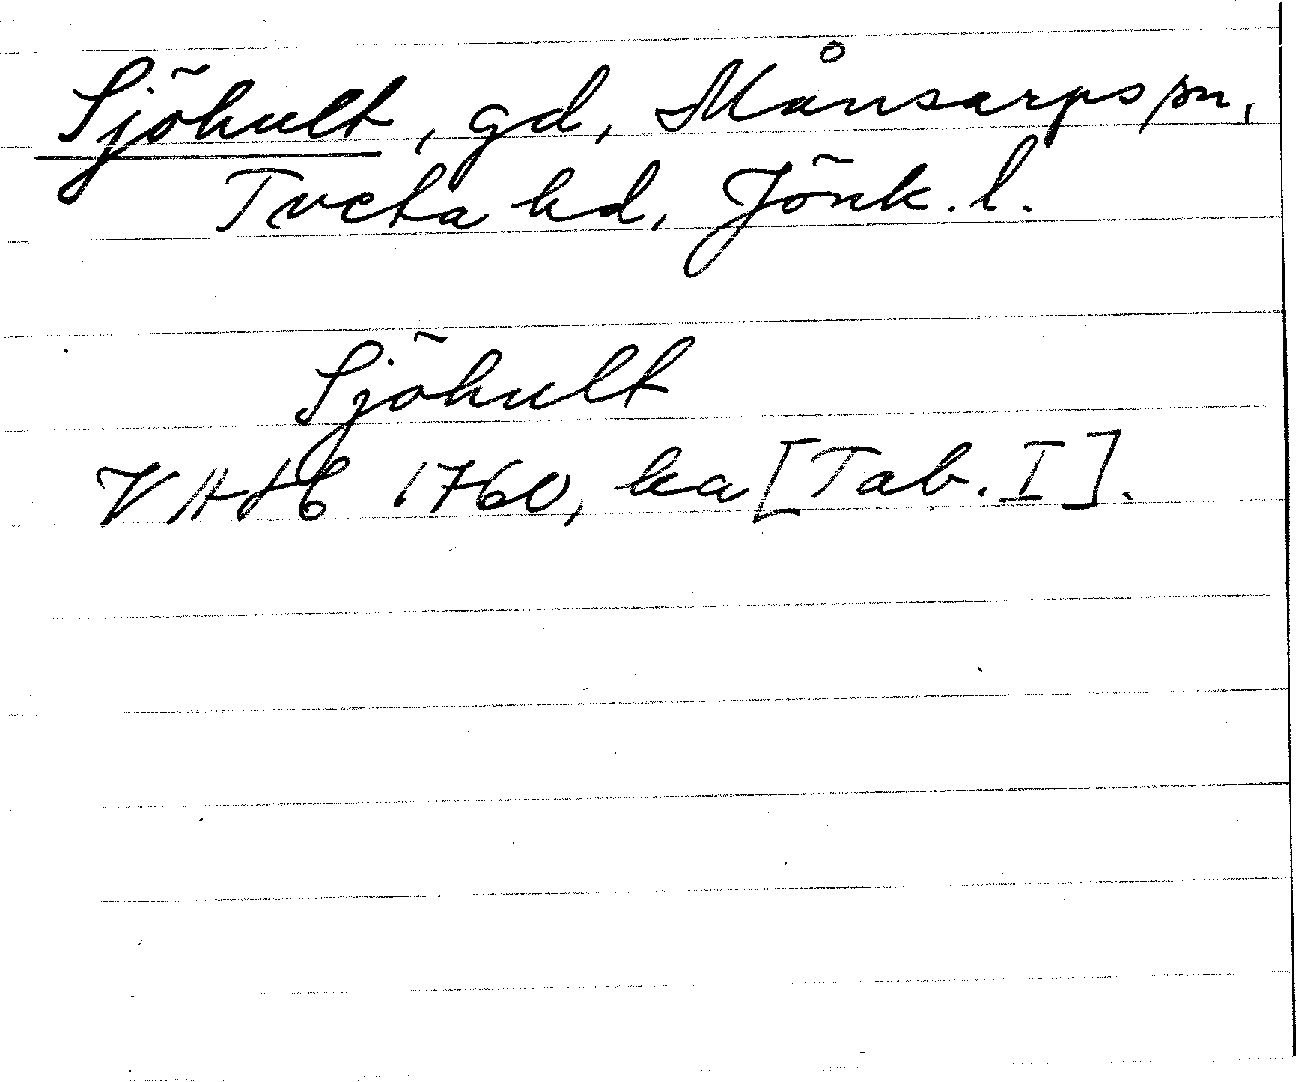 Sjöhult, gd, Månsarps sn,
Tveta hd, Jönk. l.
Sjöhult
VAH 1760, ka [Tab. I].